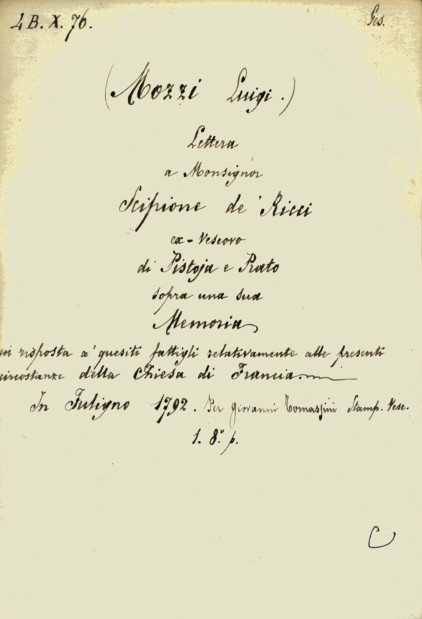 4 B. X. 76. Ges.
(Mozzi Luigi.)
Lettera
a Monsignor
Scipione de' Ricci
ex-Vescovo
di Pistoja e Prato
sopra una sua
Memoria
in risposta a' quesiti fattigli relativamente alle presenti
circostanze della Chiesa di Francia
In Fuligno 1792. Per Giovanni Tomassini Stamp. Vesc.
1. 8.° p.
C